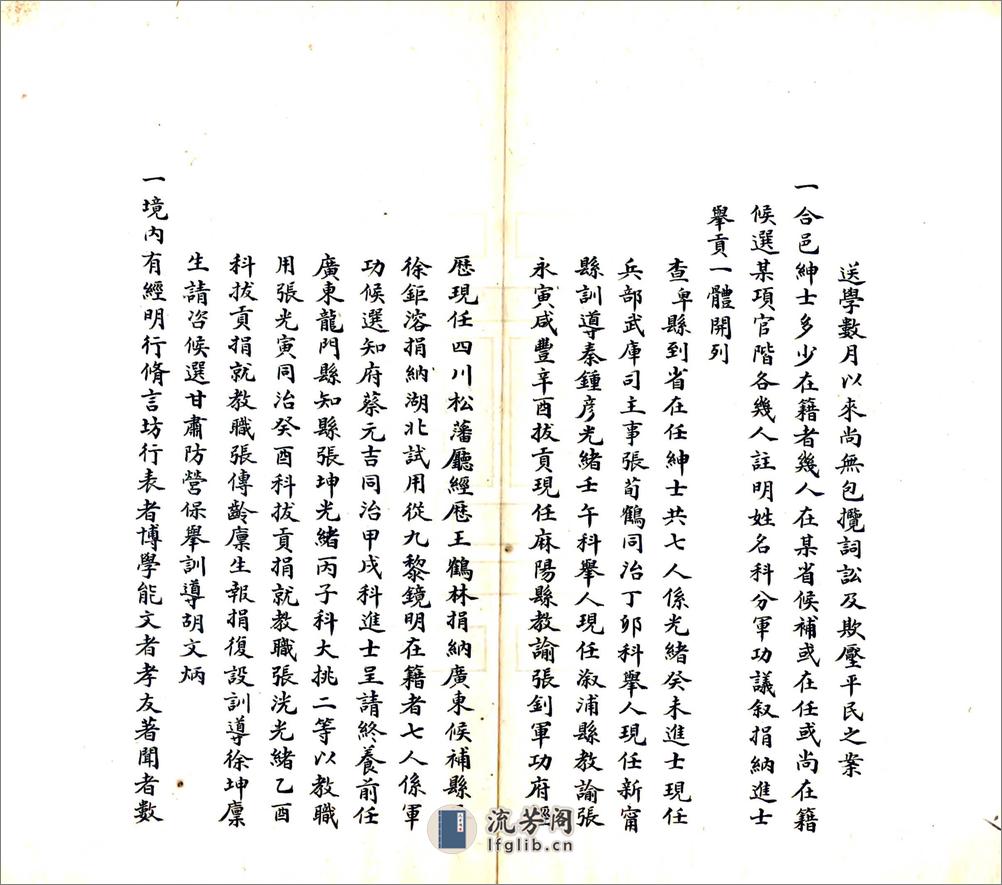 送學數月以來尚無包攬詞訟及欺壓平民之案
一合邑紳士多少在籍者幾人在某省候補或在任或尚在籍
候選某項官階各幾人註明姓名科分軍功議敘捐納進士
舉貢一體開列
查卑縣到省在任紳士共七人係光緒癸未進士現任
兵部武庫司主事張荀鶴同治丁卯科舉人現任新甯
縣訓導秦鍾彦光緒壬午科舉人現任溆浦縣教諭張
永寅咸豐辛酉拔貢現任麻陽縣教諭張釗軍功府
歷現任四川松藩廳經歷王鶴林捐納廣東候補縣
徐鉅溶捐納湖北試用從九黎鏡明在籍者七人係軍
功候選知府蔡元吉同治甲戌科進士呈請終養前任
廣東龍門縣知縣張坤光緒丙子科大挑二等以教職
用張光寅同治癸酉科拔貢捐就教職張洸光緒乙酉
科拔貢捐就教職張傳齡廩生報捐復設訓導徐坤廩
生請咨候選甘肅防營保舉訓導胡文炳
一境內有經明行脩言坊行表者博學能文者孝友著聞者數
流芳阁
lfglib.cn